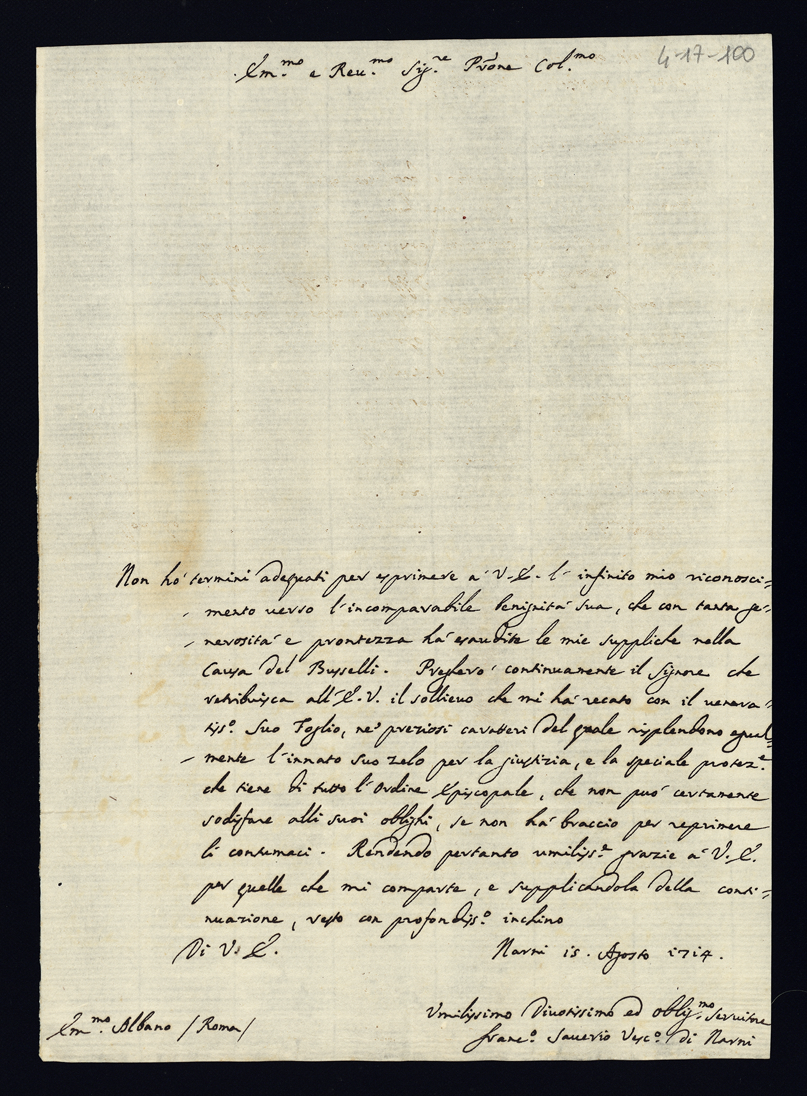 Em.mo e Reu.mo Sig.re Prōne Col.mo
4-17-100
Non hò termini adeguati per esprimere à V. E. l'infinito mio riconosci=
mento verso l'incomparabile benignità sua, che con tanta ge=
nerosità e prontezza hà esaudite le mie suppliche nella
Causa del Busselli. Pregherò continuamente il Signore che
retribuisca all'E. V. il sollievo che mi hà recato con il venera=
tiss.o Suo Foglio, ne' preziosi caratteri del quale risplendono egual=
mente l'innato suo zelo per la giustizia, e la speciale protez.e
che tiene di tutto l'Ordine Episcopale, che non può certamente
sodisfare alli suoi oblighi, se non hà braccio per reprimere
li contumaci. Rendendo pertanto umiliss.e grazie à V. E.
per quelle che mi comparte, e supplicandola della conti=
nuazione, resto con profondiss.o inchino
Di V. E. Narni 15. Agosto 1714.
Umilissimo Divotissimo ed oblig.mo Servitore
Em.mo Albano /Roma/ Franc.o Saverio Vesc.o di Narni